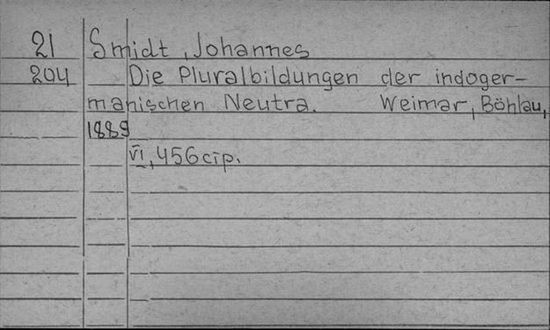 21 Smidt, Johannes
204 Die Pluralbildungen der indoger-
manischen Neutra. Weimar, Böhlau,
1889
VI, 456 стр.